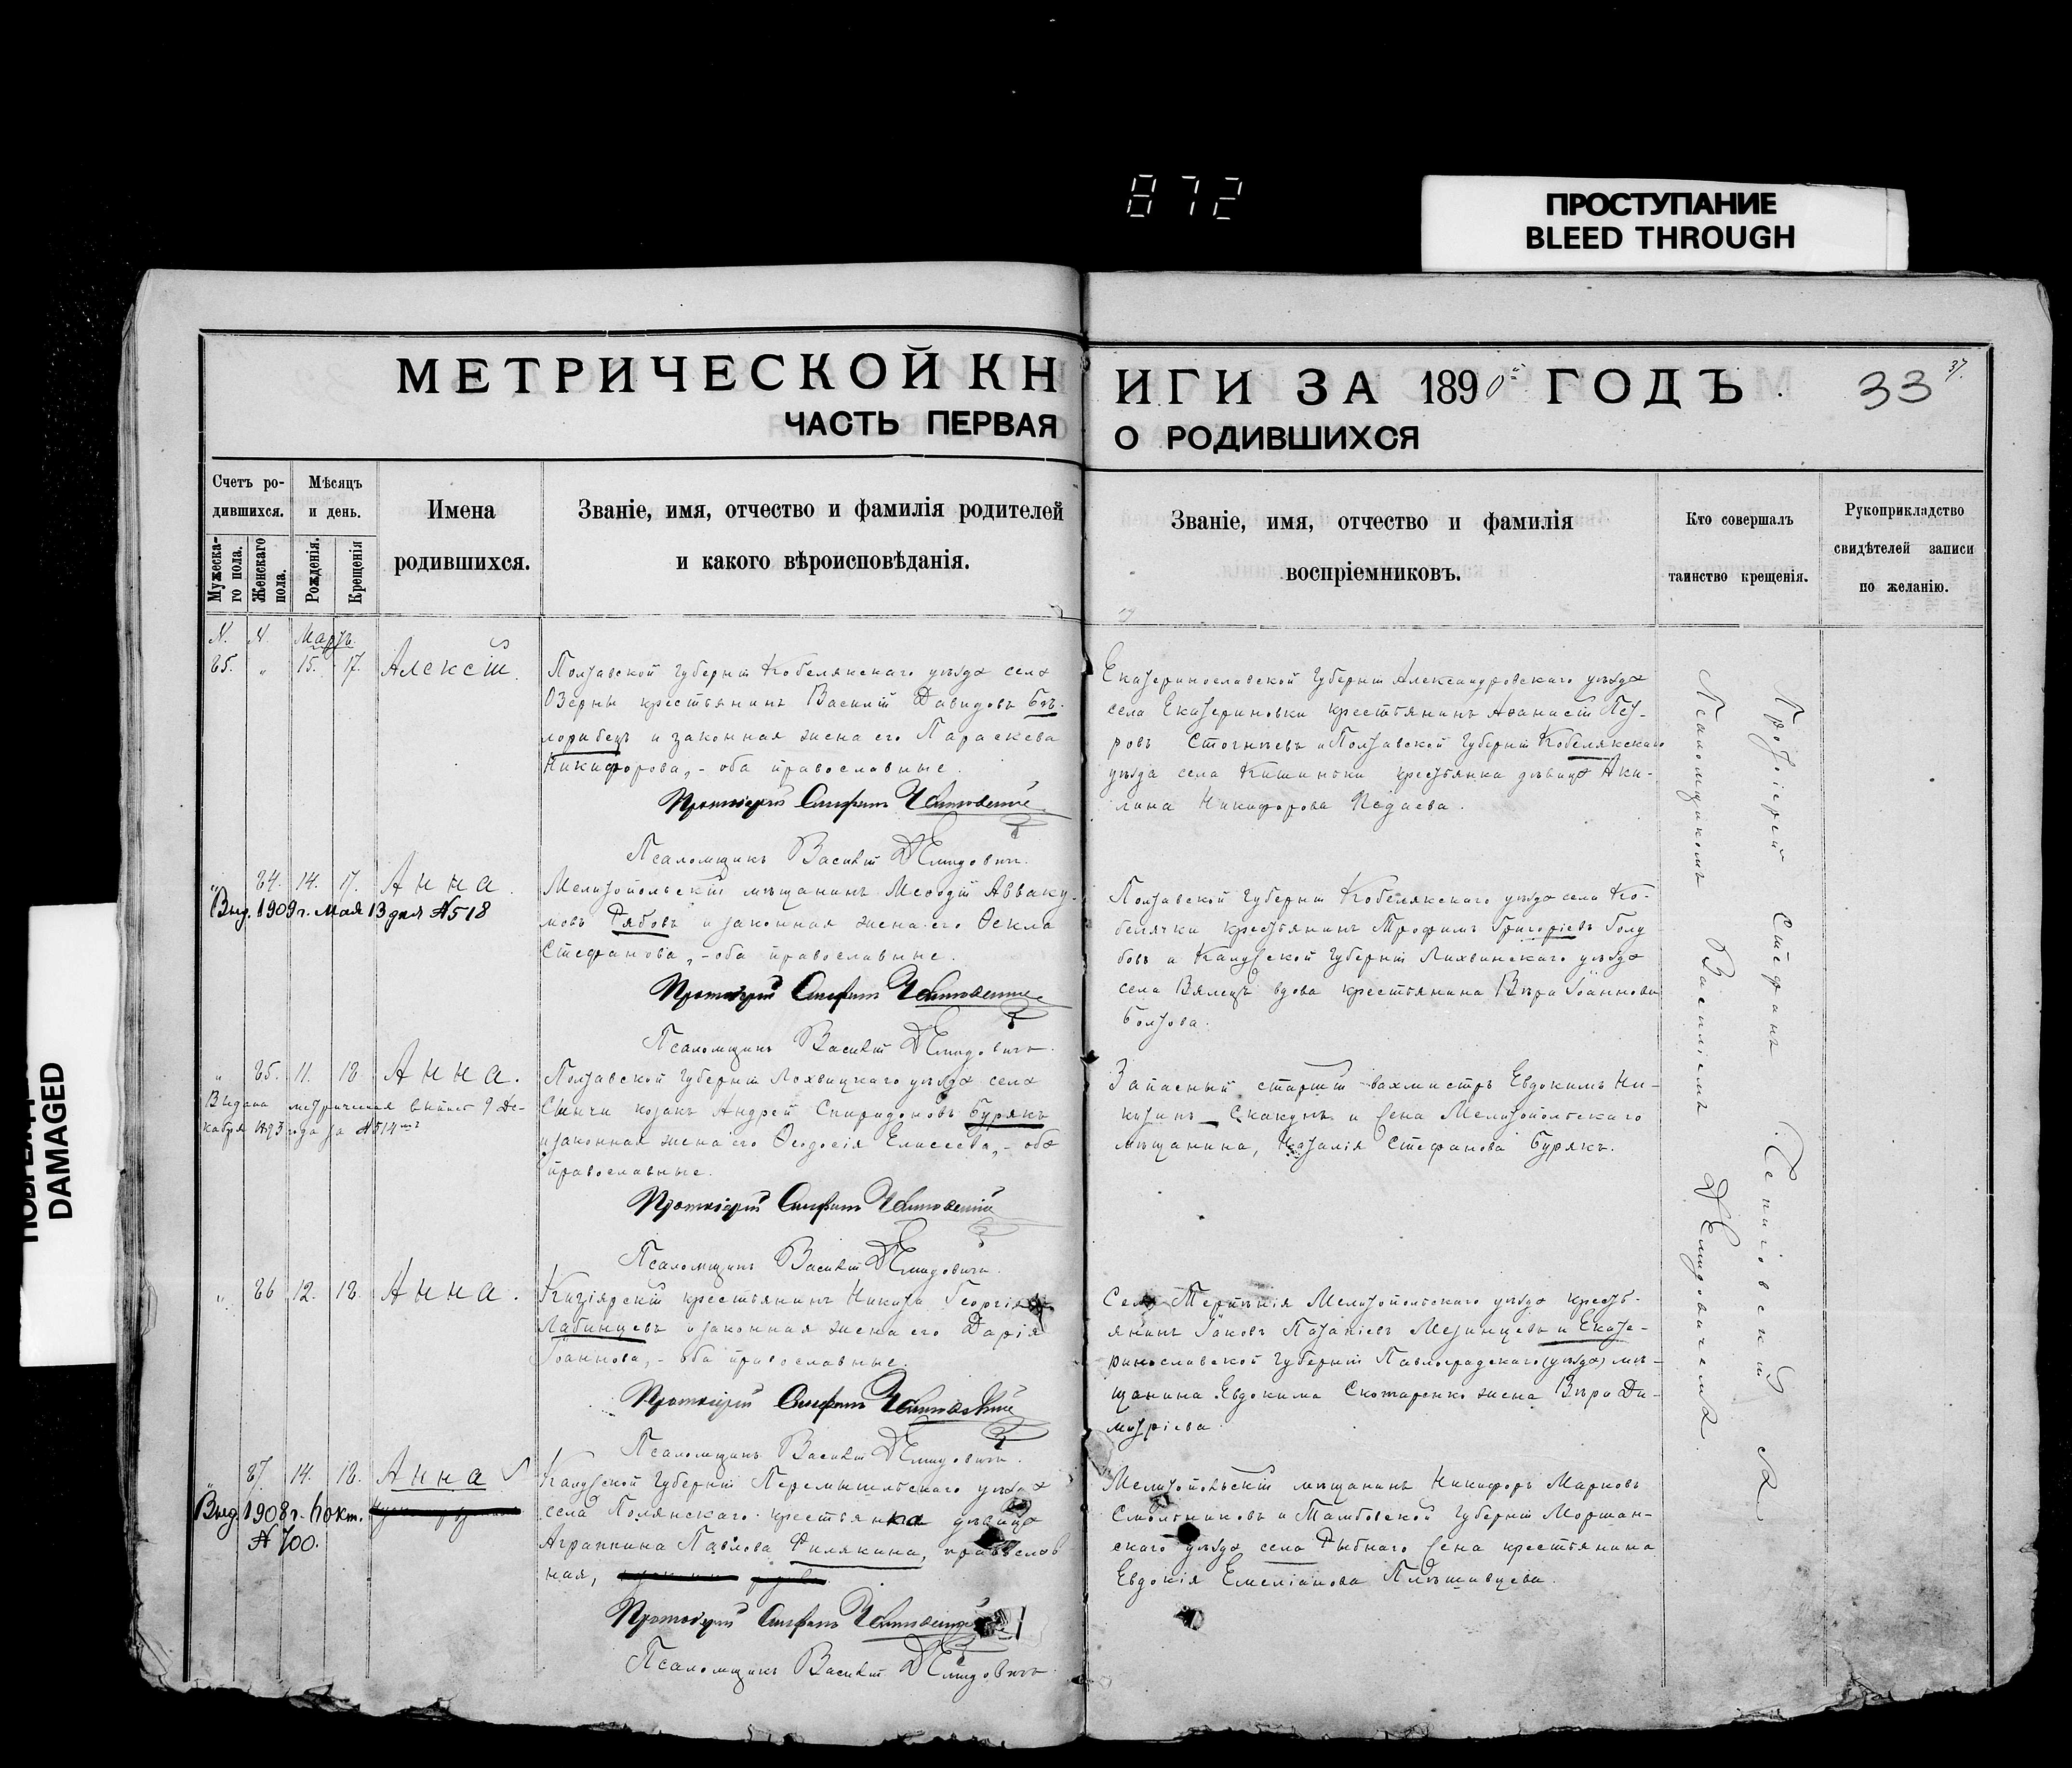 872
ПРОСТУПАНИЕ
BLEED THROUGH
DAMAGED
МЕТРИЧЕСКОЙ КН
ИГИ ЗА 1890й ГОДЪ.
33
37.
ЧАСТЬ ПЕРВАЯ
О РОДИВШИХСЯ
Счетъ ро-
дившихся.
Мужеска-
го пола.
Женскаго
пола.
Мѣсяцъ
и день.
Рожденія.
Крещенія
Имена
родившихся.
Званіе, имя, отчество и фамилія родителей
и какого вѣроисповѣданія.
Званіе, имя, отчество и фамилія
воспріемниковъ.
Кто совершалъ
таинство крещенія.
Рукоприкладство
свидѣтелей записи
по желанію.
N. N. Мартъ
85. „ 15. 17. Алексій.
Полтавской Губерніи Кобелякскаго уѣзда села
Озеръ крестьянинъ Василій Давидовъ Бѣ-
лорибецъ и законная жена его Параскева
Никифорова, - оба православные.
Протоіерей Стефанъ
Псаломщикъ Василій Демидовичъ.
Екатеринославской Губерніи Александровскаго уѣзда
села Екатериновки крестьянинъ Аѳанасій Пет-
ровъ и Полтавской Губерніи Кобелякскаго
уѣзда села Кишеньки крестьянка дѣвица Аки-
лина Никифорова
„ 84. 14. 17. Анна.
Выд. 1909 г. мая 13 дня N518
Мелитопольскій мѣщанинъ Меѳодій Авваку-
мовъ Рябовъ и законная жена его Ѳекла
Стефанова, - оба православные.
Протоіерей Стефанъ
Псаломщикъ Василій Демидовичъ.
Полтавской Губерніи Кобелякскаго уѣзда села Ко-
белячки крестьянинъ Трофимъ Григоріевъ Голу
бовъ и Калужской Губерніи Лихвинскаго уѣзда
села вдова крестьянина Вѣра Іоаннова
Болтова.
„ 85. 11. 18. Анна.
Выдана метрическая выпись 9 Де-
кабря 1893 года за N514мъ
Полтавской Губерніи Лохвицкаго уѣзда села
казакъ Андрей Спиридоновъ Бурякъ
и законная жена его Ѳеодосія Елисеева, - оба
православные.
Протоіерей Стефанъ
Псаломщикъ Василій Демидовичъ.
Запасный старшій вахмистръ Евдокимъ Ни-
китинъ Скакунъ и жена Мелитопольскаго
мѣщанина, Наталія Стефанова Бурякъ.
„ 86 12. 18. Анна.
Кизіярскій крестьянинъ Никита
Лабинцевъ и законная жена его Дарія
Іоаннова, - оба православные.
Протоіерей Стефанъ
Псаломщикъ Василій Демидовичъ.
Села Терпѣнія Мелитопольскаго уѣзда кресть-
янинъ Іаковъ и Екате-
ринославской Губерніи Павлоградскаго (уѣзда) мѣ-
щанина Евдокима Скотаренко жена Вѣра Ди-
митріева
„ 87. 14. 18. Анна
Выд. 1908 г. окт.
N 700.
Калужской Губерніи Перемышльскаго уѣзда
села Полянскаго крестьянка дѣвица
Агриппина Павлова Филякина, православ
ная,
Протоіерей Стефанъ
Псаломщикъ Василій Демидовичъ.
Мелитопольскій мѣщанинъ Никифоръ Марковъ
и Тамбовской Губерніи Моршан-
скаго уѣзда села жена крестьянина
Евдокія Емеліанова
Протоіерей Стефанъ
Псаломщикомъ Василіемъ Демидовичемъ.